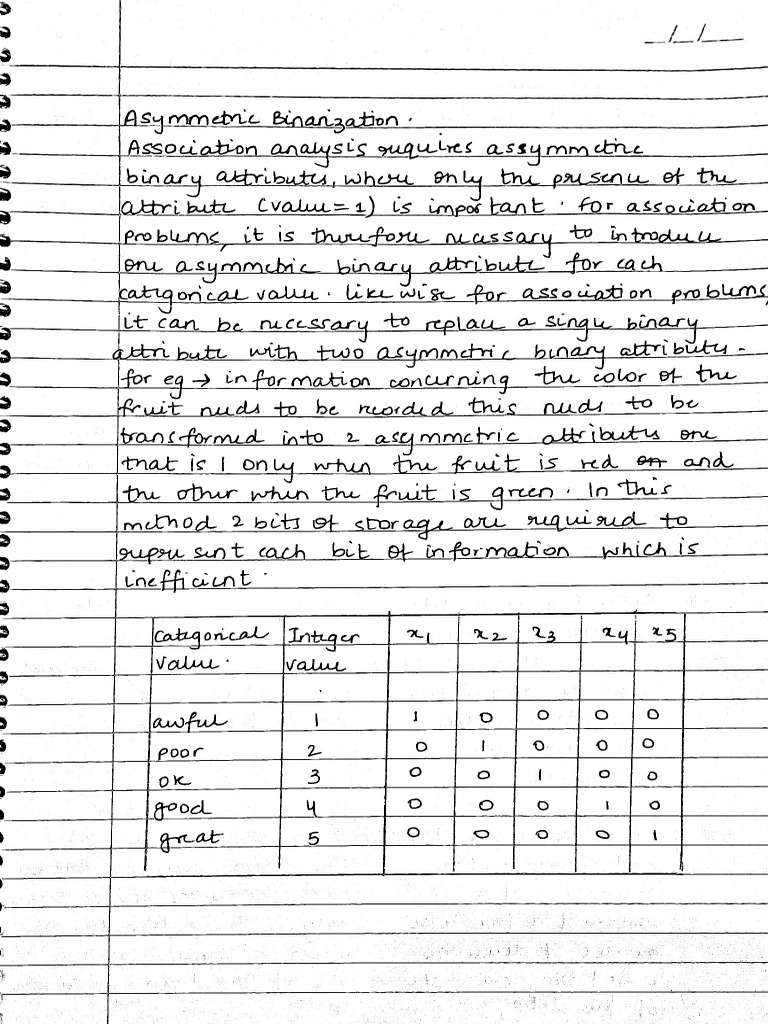 _/_/__
Asymmetric Binarization.
Association analysis requires assymmetric
binary attributes, where only the presence of the
attribute (value=1) is important. for association
problems, it is therefore necessary to introduce
one asymmetric binary attribute for each
categorical value. likewise for association problems,
it can be necessary to replace a single binary
attribute with two asymmetric binary attributes.
for eg → information concerning the color of the
fruit needs to be recorded this needs to be
transformed into 2 asymmetric attributes one
that is 1 only when the fruit is red or and
the other when the fruit is green. In this
method 2 bits of storage are required to
represent each bit of information which is
inefficient.
Categorical Integer x1 x2 x3 x4 x5
value. value
awful 1 1 0 0 0 0
poor 2 0 1 0 0 0
ok 3 0 0 1 0 0
good 4 0 0 0 1 0
great 5 0 0 0 0 1